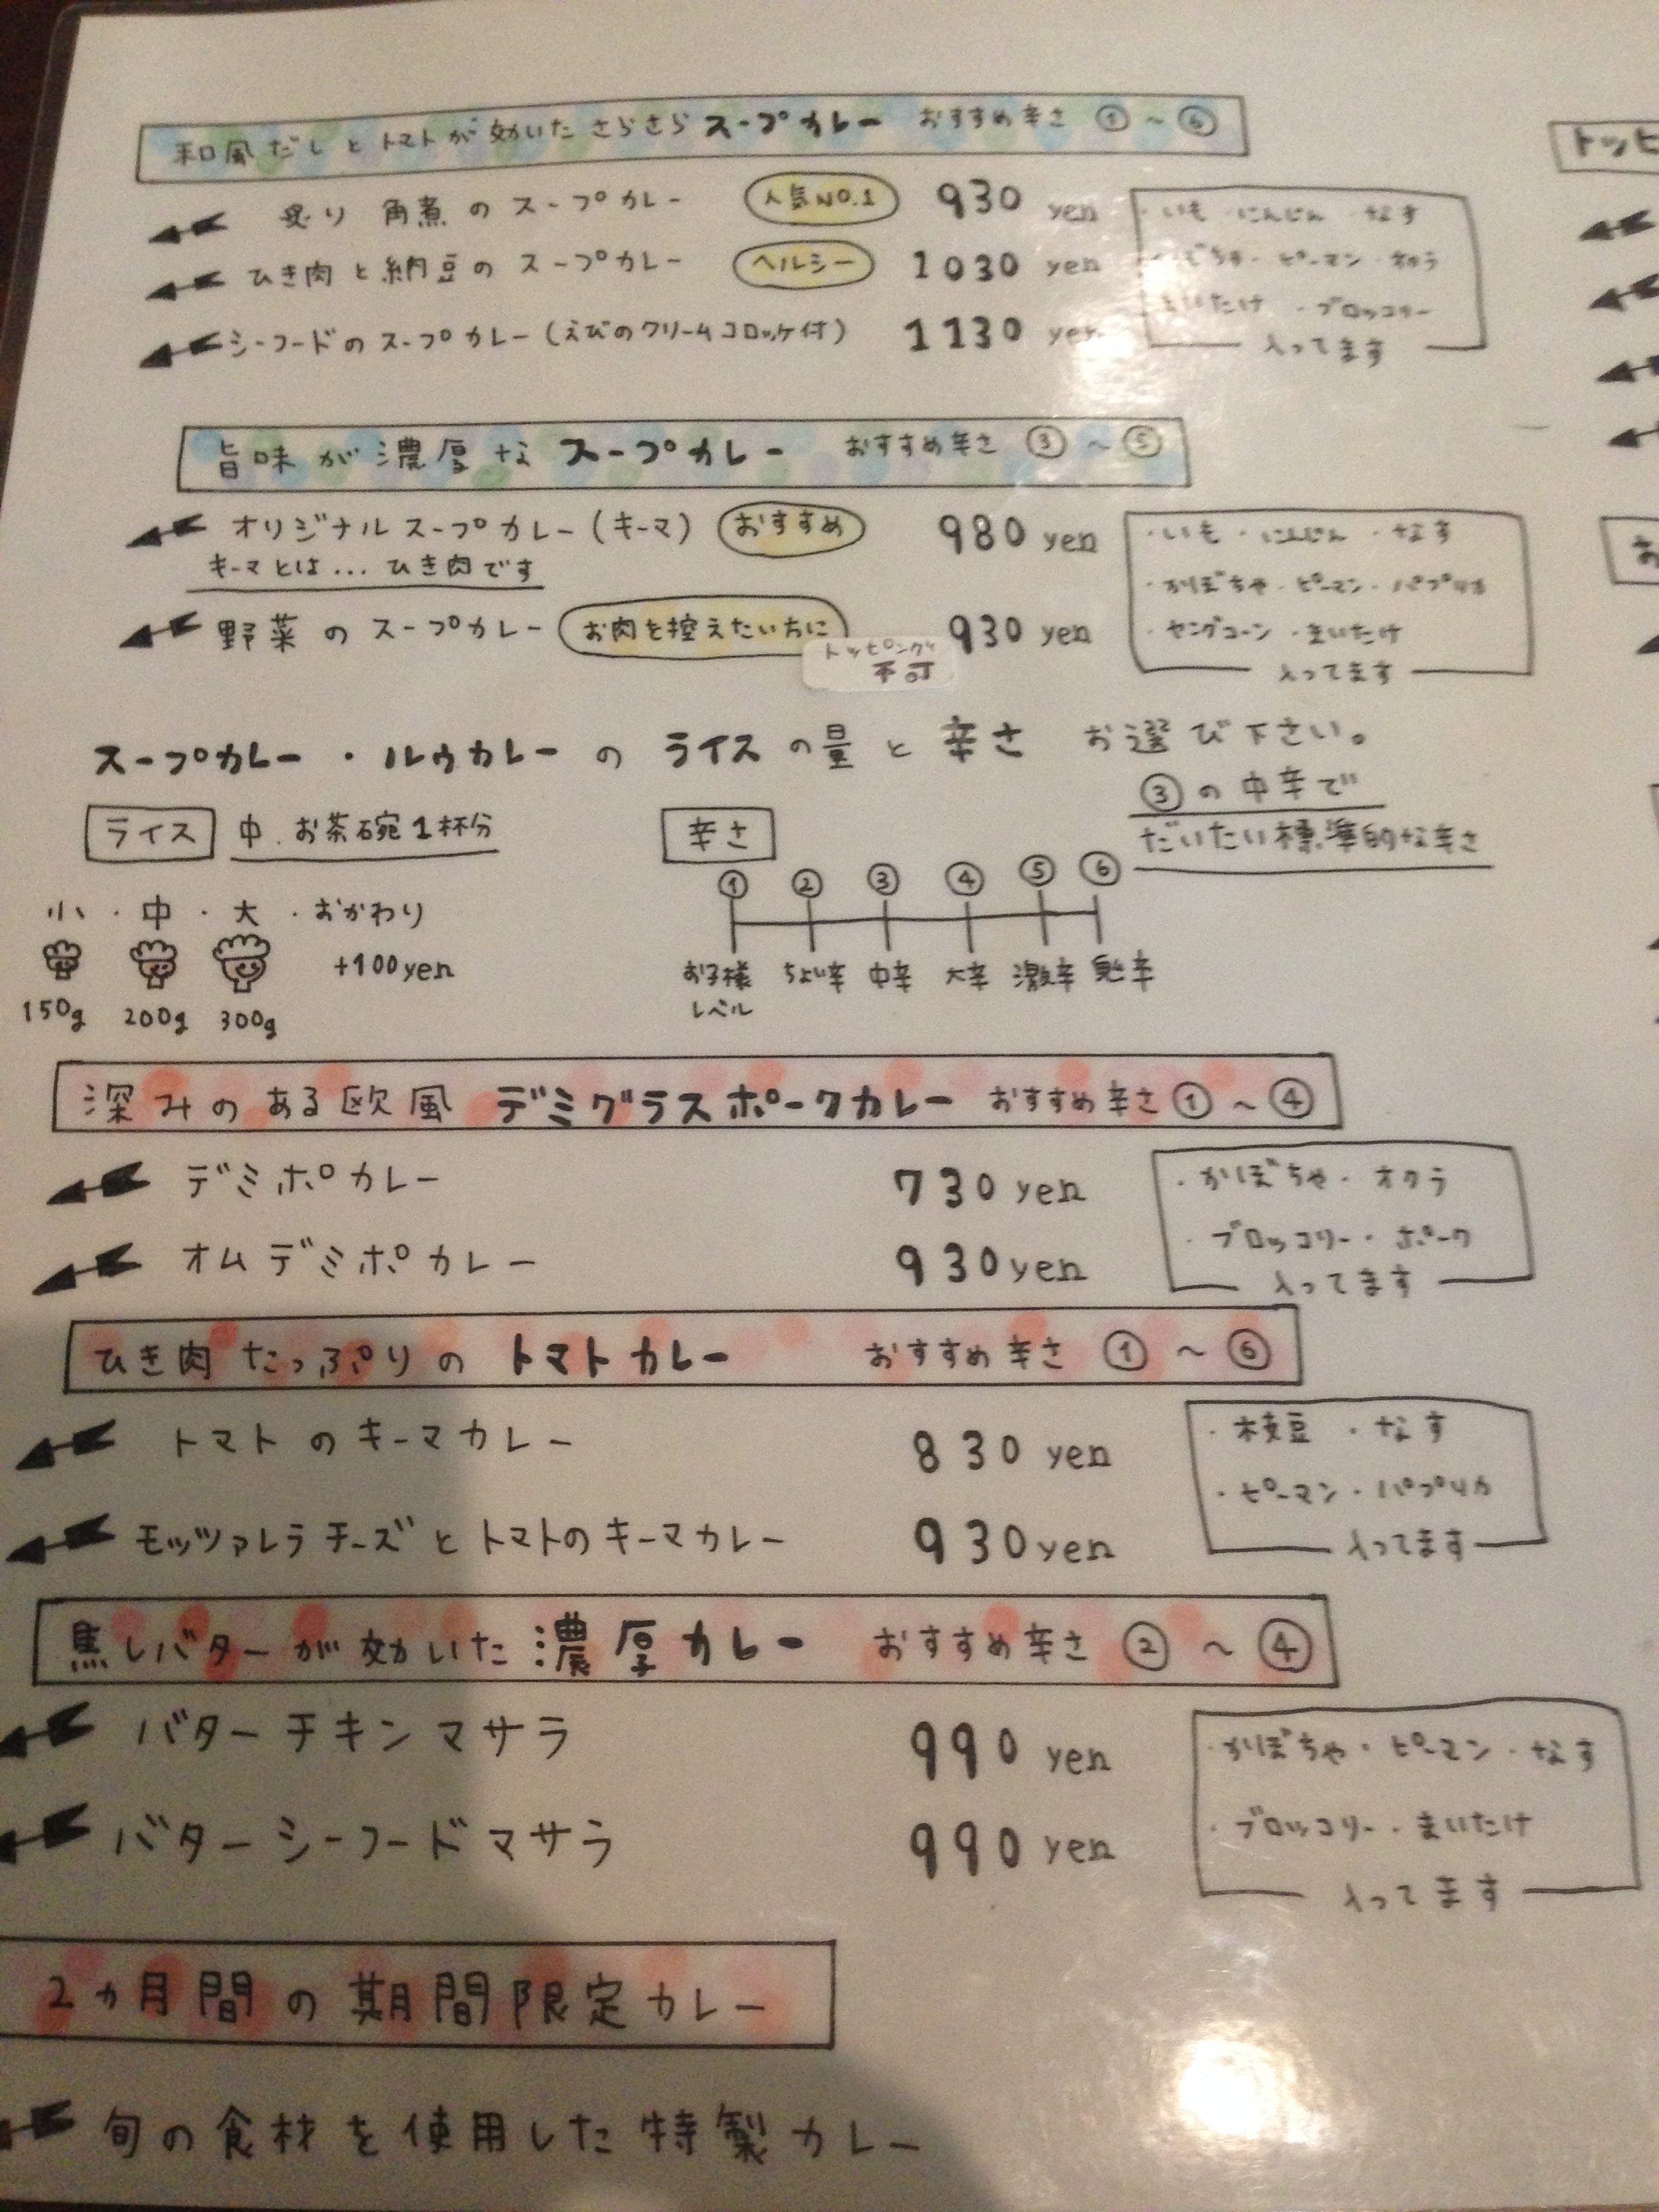 和風だしとトマトが効いたさらさらスープカレー おすすめ辛さ ①~⑥
炙り角煮のスープカレー 人気NO.1 930 yen
ひき肉と納豆のスープカレー ヘルシー 1030 yen
シーフードのスープカレー(えびのクリームコロッケ付) 1130 yen
・いも・にんじん・なす
・かぼちゃ・ピーマン・オクラ
まいたけ・ブロッコリー
入ってます
旨味が濃厚なスープカレー おすすめ辛さ ③~⑤
オリジナルスープカレー(キーマ) おすすめ 980 yen
キーマとは...ひき肉です
野菜のスープカレー お肉を控えたい方に 930 yen
トッピング
不可
・いも・にんじん・なす
・かぼちゃ・ピーマン・パプリカ
・ヤングコーン・まいたけ
入ってます
スープカレー・ルゥカレーのライスの量と辛さ お選び下さい。
③の中辛で
だいたい標準的な辛さ
ライス 中.お茶碗1杯分
小・中・大・おかわり
+100yen
150g 200g 300g
辛さ
① ② ③ ④ ⑤ ⑥
お子様レベル ちょい辛 中辛 大辛 激辛 鬼辛
深みのある欧風 デミグラスポークカレー おすすめ辛さ①~④
デミポカレー 730 yen
オムデミポカレー 930yen
・かぼちゃ・オクラ
・ブロッコリー・ポーク
入ってます
ひき肉たっぷりの トマトカレー おすすめ辛さ ①~⑥
トマトのキーマカレー 830 yen
モッツァレラチーズとトマトのキーマカレー 930yen
・枝豆・なす
・ピーマン・パプリカ
入ってます
焦しバターが効いた濃厚カレー おすすめ辛さ ②~④
バターチキンマサラ 990 yen
バターシーフードマサラ 990 yen
・かぼちゃ・ピーマン・なす
・ブロッコリー・まいたけ
入ってます
2ヵ月間の期間限定カレー
旬の食材を使用した特製カレー
トッピ
お